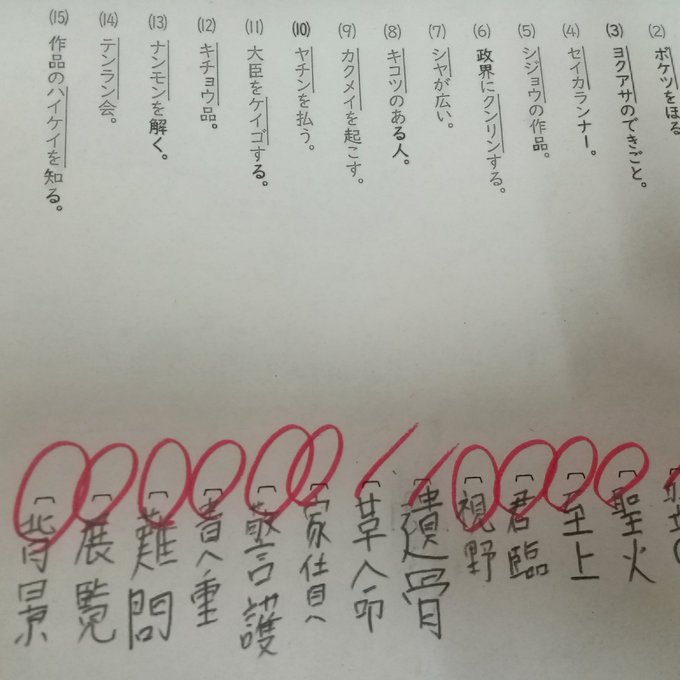 (2) ボケツをほる
(3) ヨクアサのできごと。
(4) セイカランナー。
(5) シジョウの作品。
(6) 政界にクンリンする。
(7) シヤが広い。
(8) キコツのある人。
(9) カクメイを起こす。
(10) ヤチンを払う。
(11) 大臣をケイゴする。
(12) キチョウ品。
(13) ナンモンを解く。
(14) テンラン会。
(15) 作品のハイケイを知る。
聖火
至上
君臨
視野
遺骨
草命
家賃
警護
貴重
難問
展覧
背景